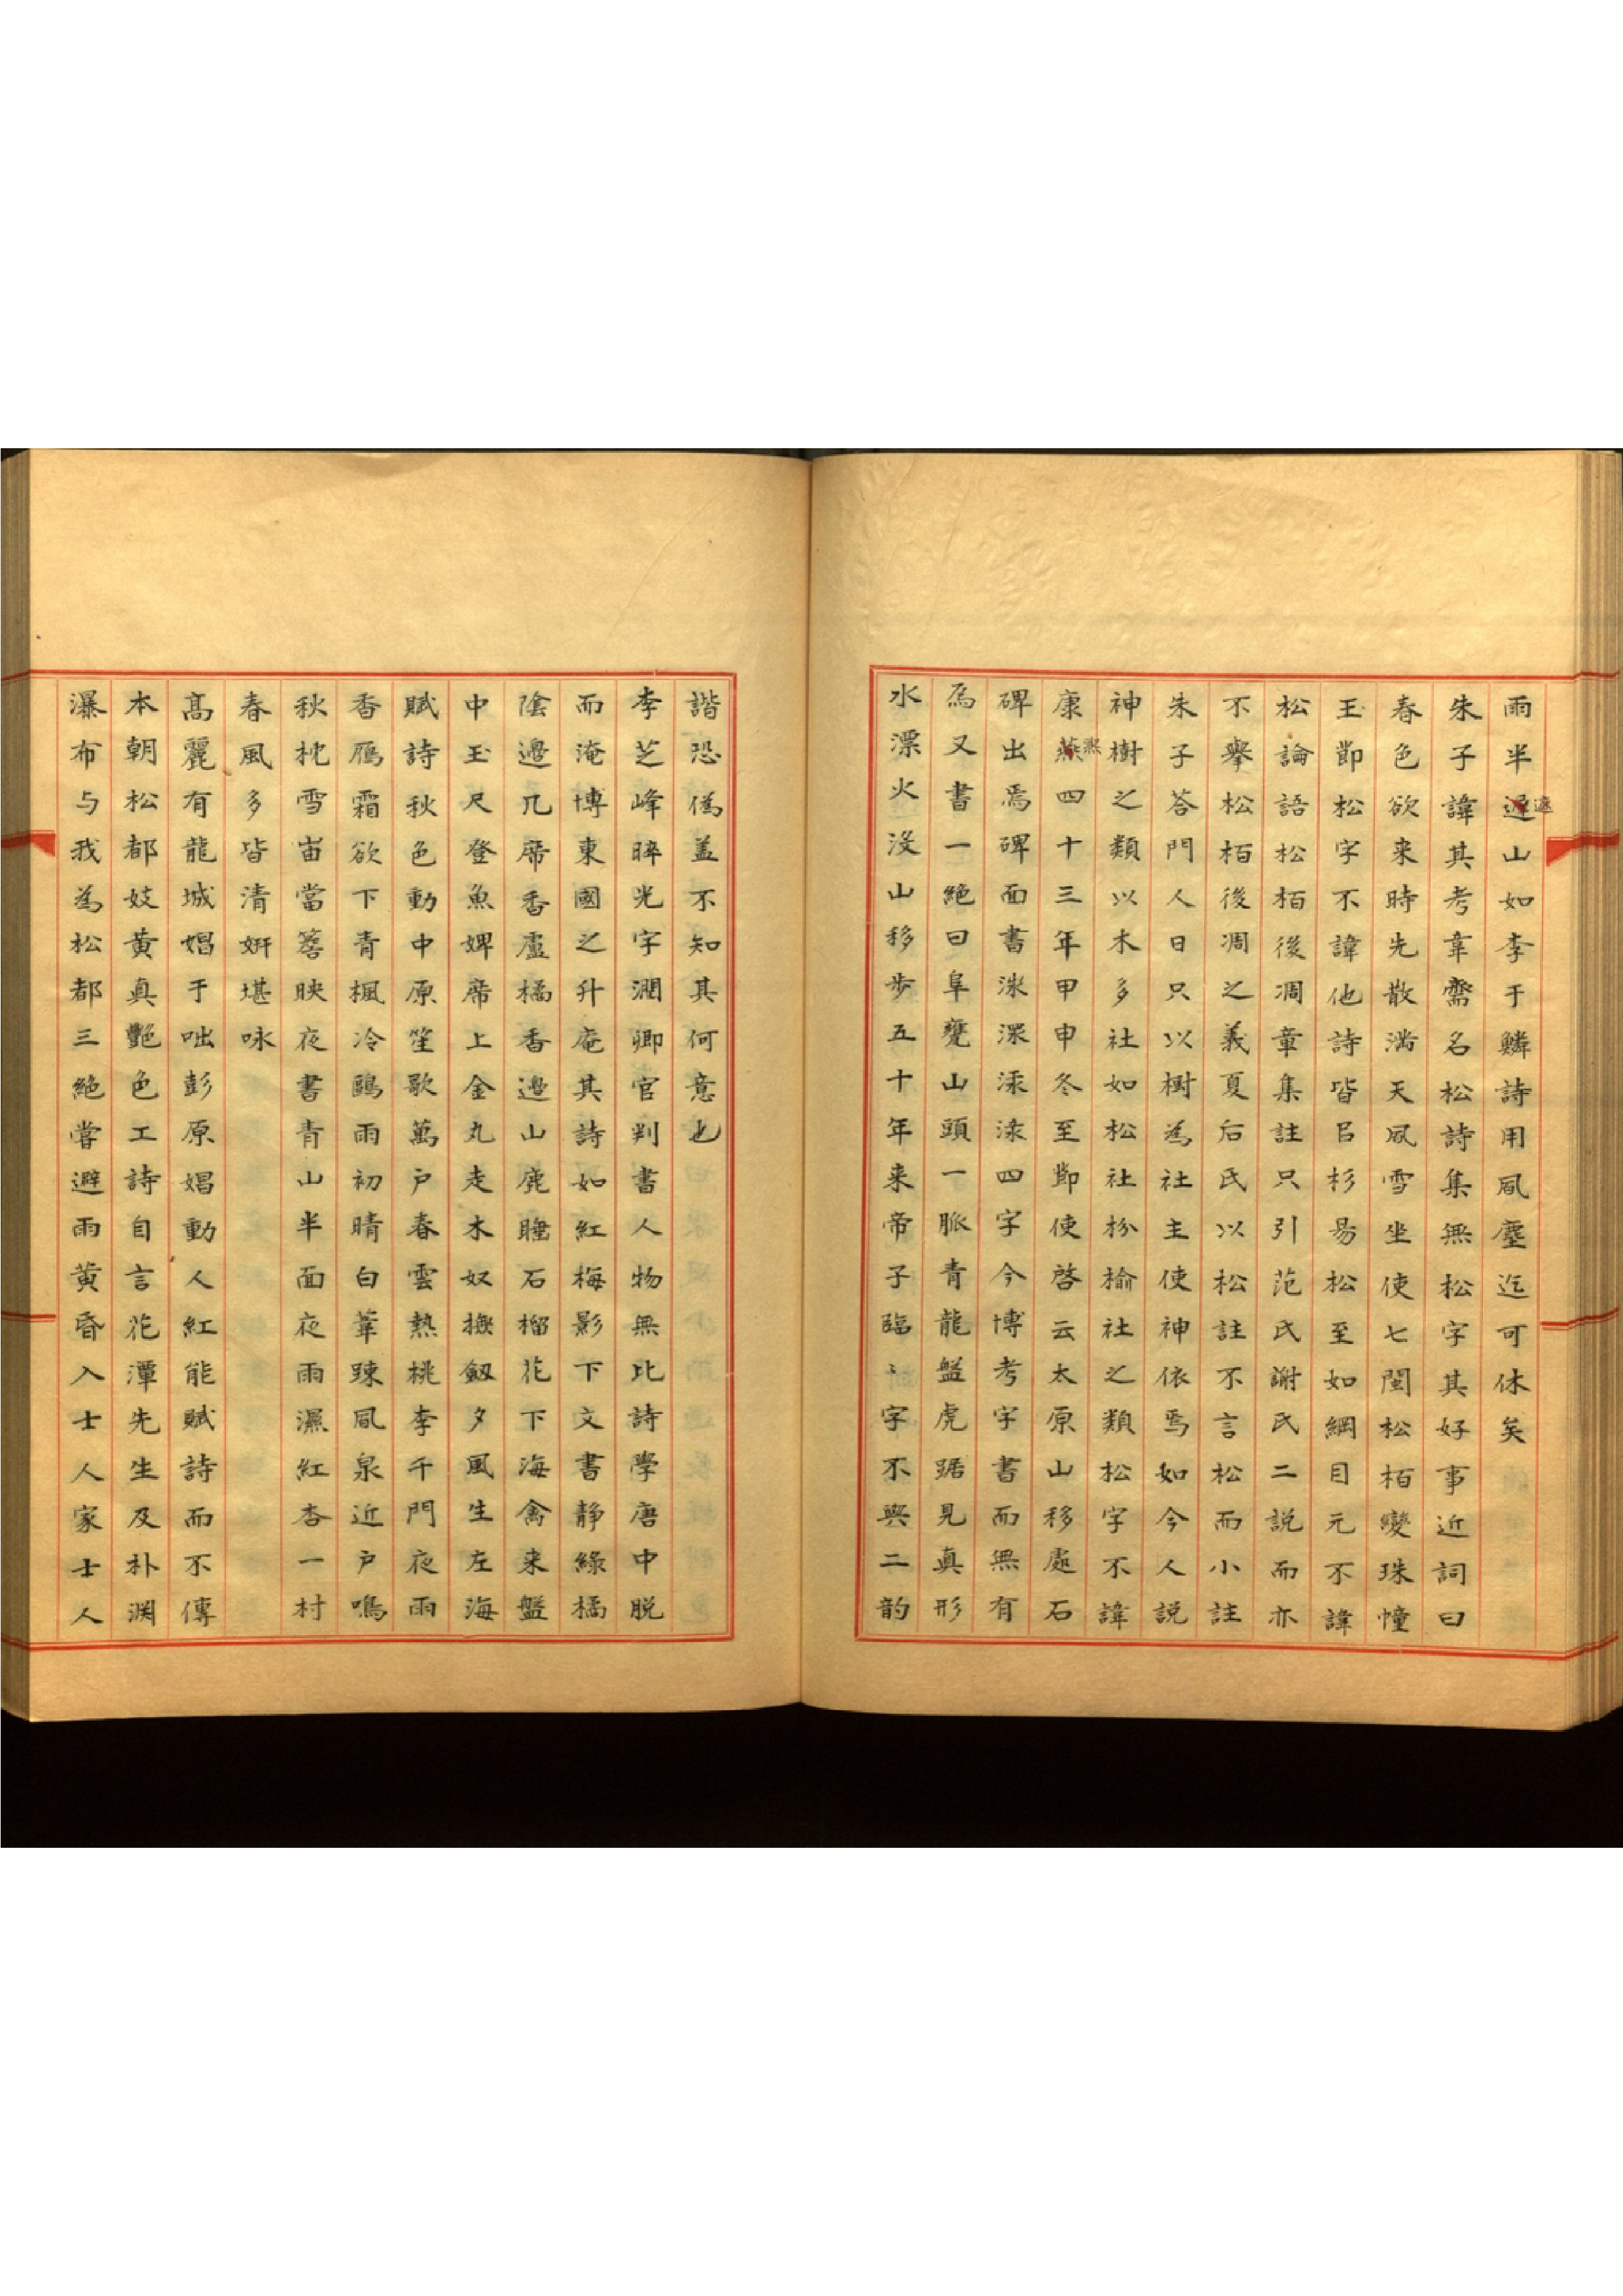 雨半遝山如李于鱗詩用風塵迄可休矣
遠
朱子諱其考韋齋名松詩集無松字其好事近詞曰
春色欲来時先散滿天風雪坐使七閩松栢變珠幢
玉節松字不諱他詩皆㠯杉易松至如綱目元不諱
松論語松栢後凋章集註只引范氏謝氏二説而亦
不擧松栢後凋之義夏后氏以松註不言松而小註
朱子荅門人曰只以樹為社主使神依焉如今人説
神樹之類以木多社如松社枌楡社之類松字不諱
康燕四十三年甲申冬至節使啓云太原山移處石
熙
碑出焉碑面書四字今博考字書而無有
為又書一絶曰阜甕山頭一脈青龍盤虎踞見真形
水漂火沒山移步五十年来帝子臨〻字不與二韵
諧恐僞盖不知其何意也
李芝峰睟光字潤卿官判書人物無比詩學唐中脱
而淹博東國之升庵其詩如紅梅影下文書静綠橘
陰邊几席香盧橘香邊山鹿睡石榴花下海禽来盤
中玉尺登魚婢席上金丸走木奴撫劔夕風生左海
賦詩秋色動中原笙歌萬户春雲熱桃李千門夜雨
香鴈霜欲下青楓冷鷗雨初晴白葦踈風泉近户鳴
秋枕雪宙當簷映夜書青山半面夜雨濕紅杏一村
春風多皆清姸堪咏
髙麗有龍城娼于咄彭原娼動人紅能賦詩而不傳
本朝松都妓黄真艶色工詩自言花潭先生及朴渊
瀑布与我為松都三絶嘗避雨黄昏入士人家士人